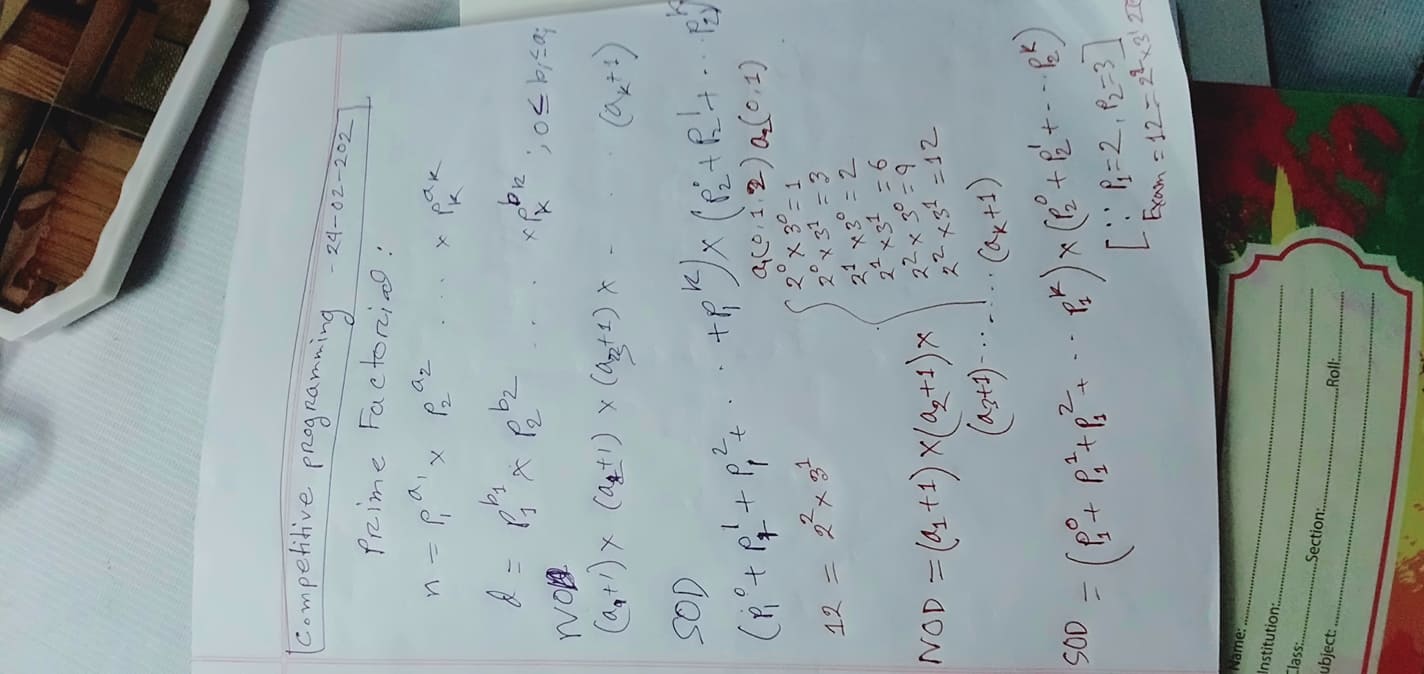 Competitive programming - 24-02-202
Prime Factorial :
n = P₁^a₁ × P₂^a₂ . . . . × P_K^aK
d = P₁^b₁ × P₂^b₂ . . . . × P_K^bK ; 0 ≤ bᵢ ≤ aᵢ
NOD
(a₁+1) × (a₁+1) × (a₂+1) × . . . . (a_K+1)
SOD
(P₁⁰ + P₁¹ + P₁² + . . . + P₁^K) × (P₂⁰ + P₂¹ + . . P₂^K)
12 = 2² × 3¹
a₁(0,1,2) a₂(0,1)
2⁰ × 3⁰ = 1
2⁰ × 3¹ = 3
2¹ × 3⁰ = 2
2¹ × 3¹ = 6
2² × 3⁰ = 9
2² × 3¹ = 12
NOD = (a₁+1) × (a₂+1) ×
(a₃+1) . . . . . . . (a_K+1)
SOD = (P₁⁰ + P₁¹ + P₁² + . . P₁^K) × (P₂⁰ + P₂¹ + - - P₂^K)
[∵ P₁=2, P₂=3]
Exam = 12 = 2² × 3¹
Name:
Institution:
Class: Section: Roll:
ubject: